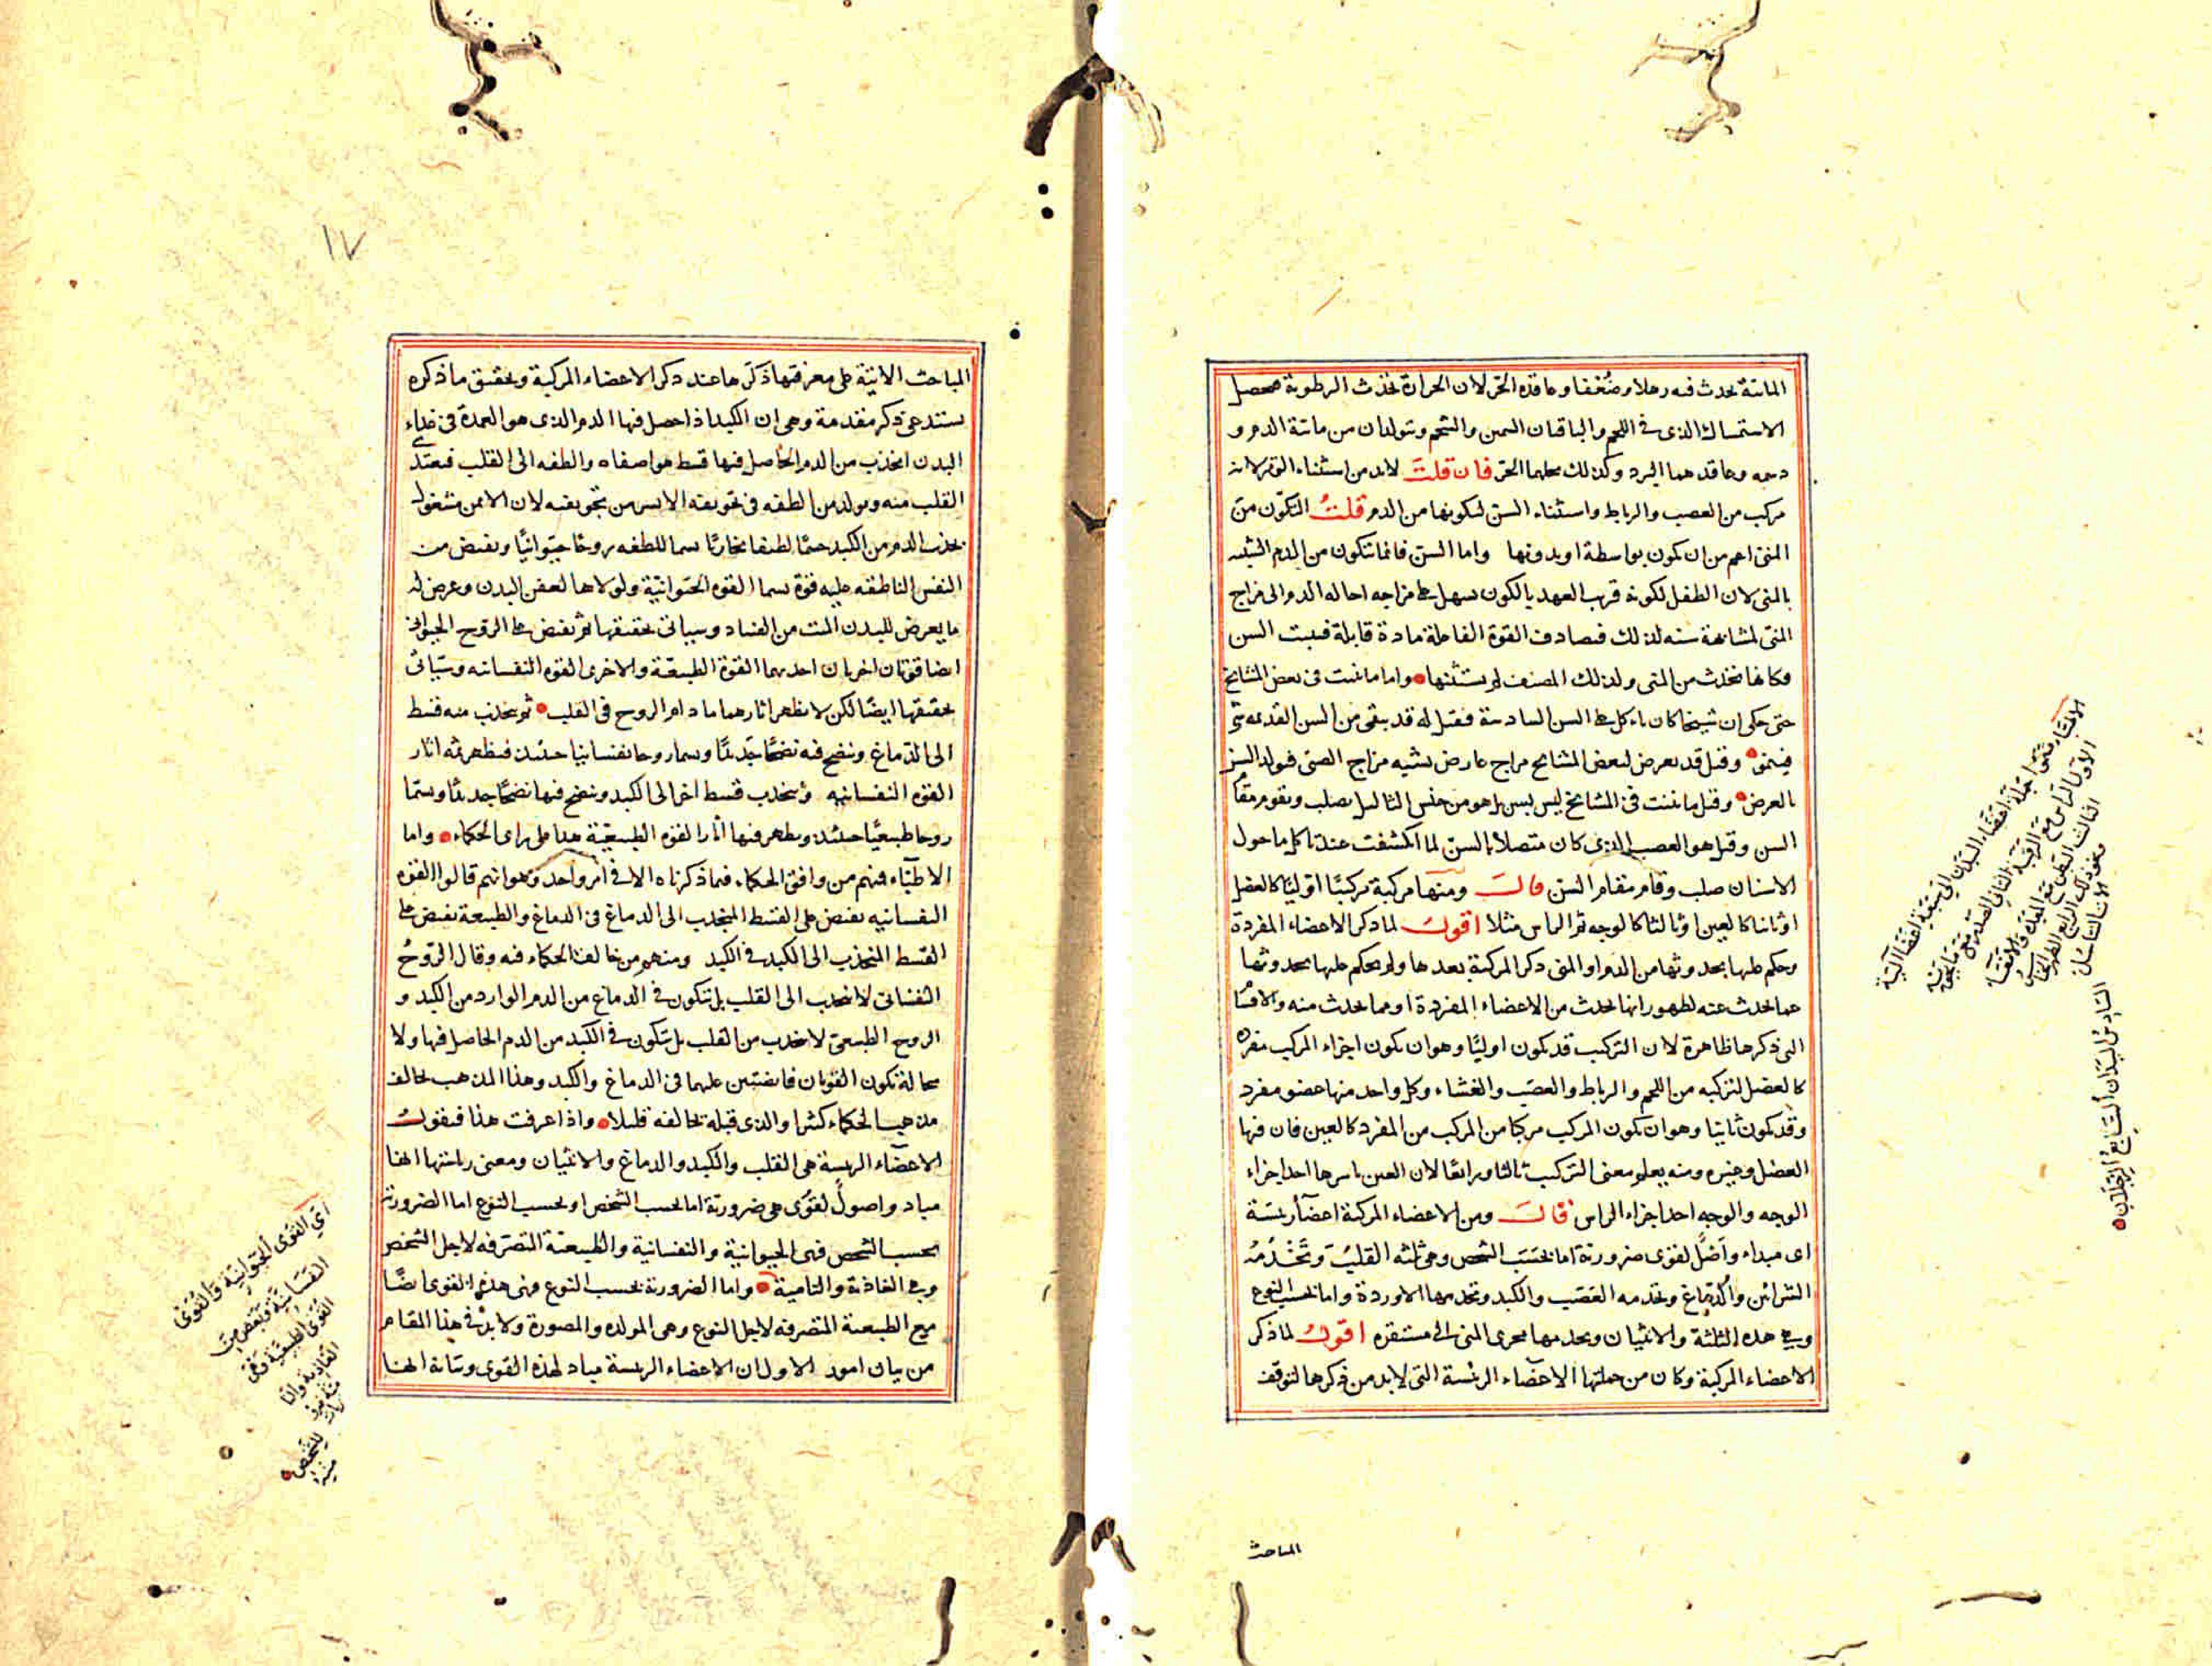 المائية يحدث فيه رهلا وضعفا وعاقده الحر لان الحرارة تحدث الرطوبة فيحصل
الاستمساك الذى فى اللحم والباقيان السمين والشحم ويتولدان من مائية الدم و
دسمه وعاقدهما البرد ولذلك يحلهما الحر فان قلت لابد من استثناء العضل لانه
مركب من العصب والرباط واستثناء السن لتكونها من الدم قلت التكون من
المنى اعم من ان يكون بواسطة او بدونها واما السن فانما تتكون من الدم الشبيه
بالمنى لان الطفل لكونه قريب العهد بالكون يسهل على مزاجه احاله الدم الى مزاج
المنى لمشابهة سنه لذلك فيصادف القوة الفاعلة مادة قابلة فينبت السن
فكانها تحدث من المنى ولذلك المصنف لم يستثنها واما ما ينبت فى بعض المشايخ
حتى حكى ان شيخا كان ياكل على السن السادسة فقيل له قد بقى من السن القديمة شئ
فينمو وقيل قد يعرض لبعض المشايخ مزاج عارض يشبه مزاج الصبى فيولد السن
بالعرض وقيل ما ينبت فى المشايخ ليس بسن بل هو من جنس الثاليل يصلب ويقوم مقام
السن وقيل هو العصب الذى كان متصلا بالسن لما انكشفت عند تاكل ما حول
الاسنان صلب وقام مقام السن قال ومنها مركبة تركيبا اوليا كالعضل
او ثانيا كالعين او ثالثا كالوجه ثم الراس مثلا اقول لما ذكر الاعضاء المفردة
وحكم عليها بحدوثها من الدم او المنى ذكر المركبة بعدها ولم يحكم عليها بحدوثها
عما يحدث عنه لظهور انها تحدث من الاعضاء المفردة او مما يحدث منه والاقسام
التى ذكرها ظاهرة لان التركيب قد يكون اوليا وهو ان يكون اجزاء المركب مفرده
كالعضل لتركبه من اللحم والرباط والعصب والغشاء وكل واحد منها عضو مفرد
وقد يكون ثانيا وهو ان يكون المركب مركبا من المركب من المفرد كالعين فان فيها
العضل وغيره ومنه يعلم معنى التركيب ثالثا ورابعا لان العين باسرها احد اجزاء
الوجه والوجه احد اجزاء الراس قال ومن الاعضاء المركبة اعضآء رئيسة
اى مبداء واصل لقوى ضرورية اما بحسب الشخص وهى ثلثه القلب وتخدمه
الشرائين والدماغ ويخدمه العصب والكبد وتخدمها الاوردة واما بحسب النوع
وهى هذه الثلثة والانثيان ويخدمها مجرى المنى الى مستقره اقول لما ذكر
الاعضاء المركبة وكان من جملتها الاعضاء الرئيسة التى لابد من ذكرها لتوقف
المباحث
السادس اليدان السابع الرجلان
١٧
المباحث الاتية على معرفتها ذكرها عند ذكر الاعضاء المركبة وتحقيق ما ذكره
يستدعى ذكر مقدمة وهى ان الكبد اذا حصل فيها الدم الذى هو العمدة فى غذاء
البدن انجذب من الدم الحاصل فيها قسط هو اصفاه والطفه الى القلب فيغتذى
القلب منه ويولد من الطفه فى تجويفه الايسر من تجويفيه لان الايمن مشغول
بجذب الدم من الكبد جسما لطيفا بخاريا يسما للطفه روحا حيوانيا ويفيض من
النفس الناطقه عليه قوة يسما القوه الحيوانية ولولاها لعفن البدن وعرض له
ما يعرض للبدن الميت من الفساد وسياتى تحقيقها ثم يفيض على الروح الحيوانى
ايضا قوتان اخريان احديهما القوة الطبيعية والاخرى القوه النفسانيه وسياتى
تحقيقها ايضا لكن لا يظهر اثارهما ما دام الروح فى القلب ثم ينجذب منه قسط
الى الدماغ وينضج فيه نضجا جديدا ويسما روحا نفسانيا حينئذ فيظهر ثمه اثار
القوه النفسانيه وينجذب قسط اخر الى الكبد وينضج فيها نضجا جديدا ويسما
روحا طبيعيا حينئذ ويظهر فيها اثار القوه الطبيعية هذا على راى الحكماء واما
الاطباء فمنهم من وافق الحكماء فيما ذكرناه الا فى امر واحد وهو انهم قالوا القوه
النفسانيه يفيض على القسط المنجذب الى الدماغ فى الدماغ والطبيعة يفيض على
القسط المنجذب الى الكبد فى الكبد ومنهم من خالف الحكماء فيه وقال الروح
النفسانى لا ينجذب الى القلب بل يتكون فى الدماغ من الدم الوارد من الكبد و
الروح الطبيعى لا ينجذب من القلب بل يتكون فى الكبد من الدم الحاصل فيها ولا
محالة تكون القوتان فايضتين عليهما فى الدماغ والكبد وهذا المذهب يخالف
مذهب الحكماء كثيرا والذى قبله يخالفه قليلا واذا عرفت هذا فنقول
الاعضاء الرئيسة هى القلب والكبد والدماغ والانثيان ومعنى رياستها انها
مباد واصول لقوى هى ضرورية اما بحسب الشخص او بحسب النوع اما الضرورية
بحسب الشخص فهى الحيوانية والنفسانية والطبيعية المتصرفه لاجل الشخص
وهى الغاذية والنامية واما الضرورية بحسب النوع فهى هذه القوى ايضا
مع الطبيعية المتصرفه لاجل النوع وهى المولده والمصورة ولابد فى هذا المقام
من بيان امور الاول ان الاعضاء الرئيسة مباد لهذه القوى وبيانه انها
اى القوى الحيوانية والقوى
النفسانية وبعض من
القوى الطبيعية وهى
الغاذية
للشخص